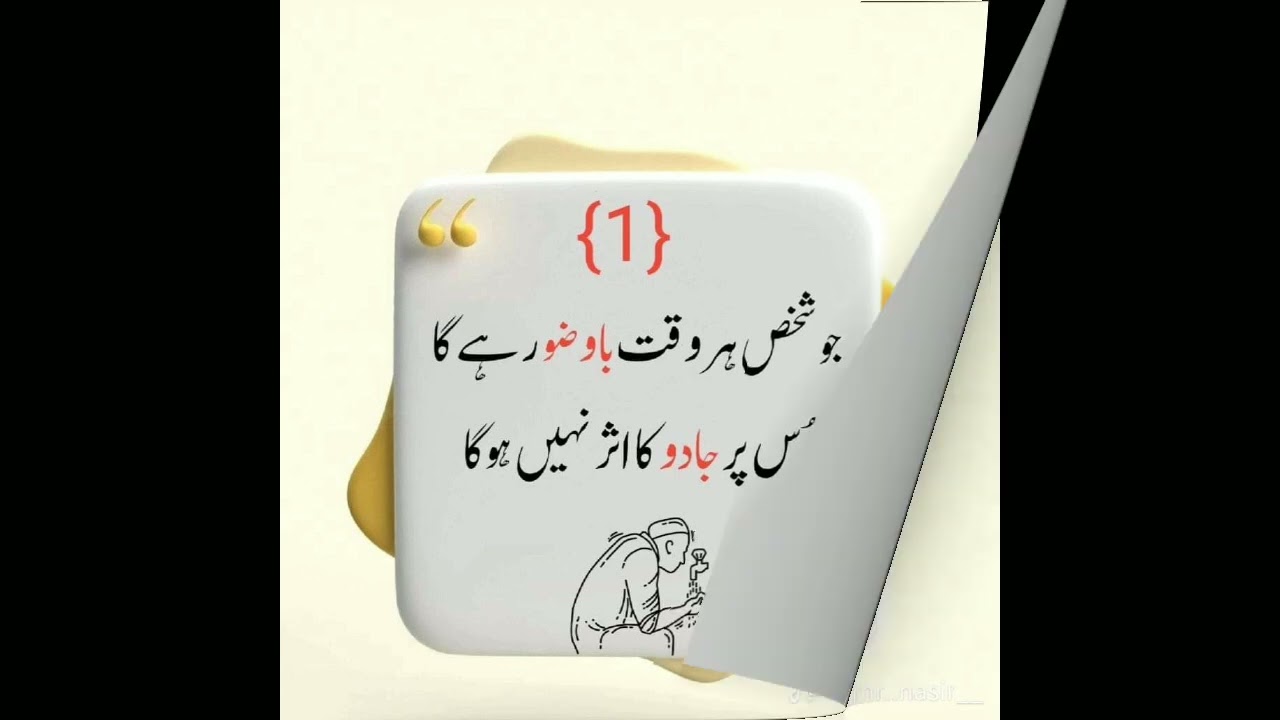 {1}
جو شخص ہر وقت باوضو رہے گا
ُس پر جادو کا اثر نہیں ہوگا